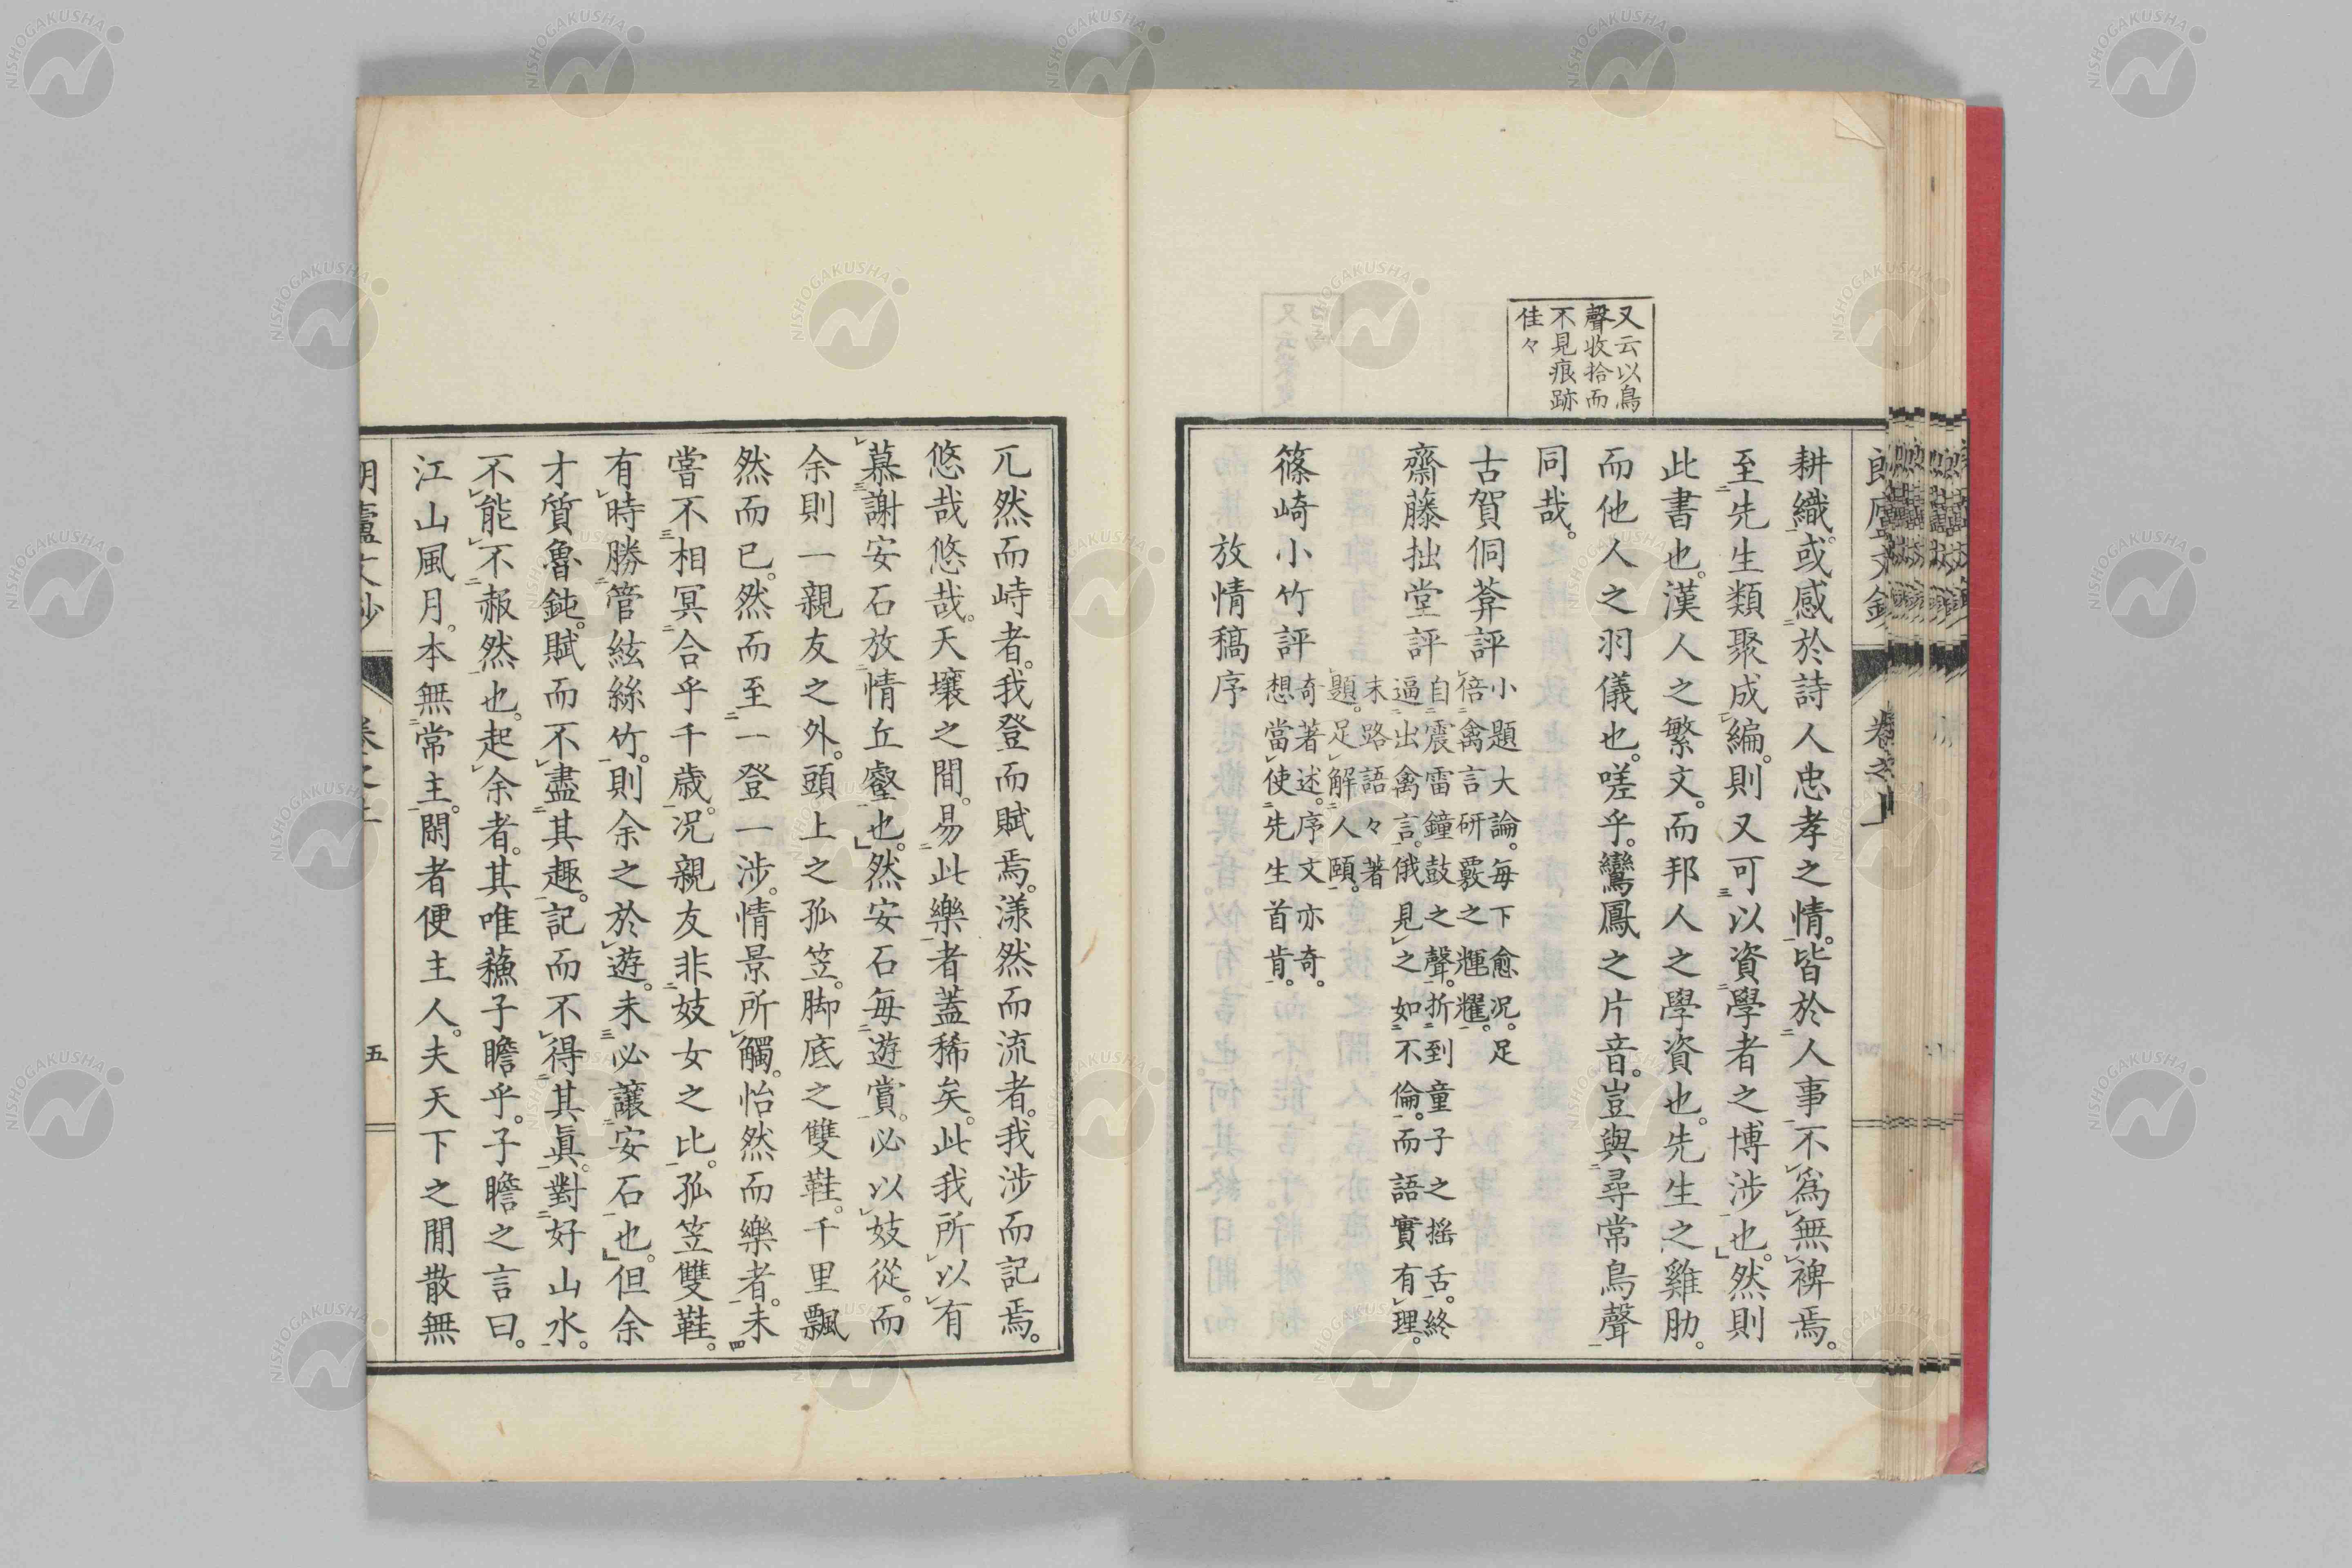 又云以鳥
聲收拾而
不見痕跡
佳々
耕織。或感於詩人忠孝之情。皆於人事不爲無裨焉。
至先生類聚成編。則又可以資學者之博涉也。然則
此書也。漢人之繁文。而邦人之學資也。先生之雞肋。
而他人之羽儀也。嗟乎。鸞鳳之片音。豈與尋常鳥聲
同哉。
古賀侗菴評
小題大論。每下愈況。足
倍禽言研覈之輝耀。
齋藤拙堂評
自震雷鐘鼓之聲。折到童子之搖舌。終
逼出禽言。俄見之如不倫。而語實有理。
末路語々著
題。足解人頤。
篠崎小竹評
奇著述。序文亦奇。
想當使先生首肯。
放情稿序
兀然而峙者。我登而賦焉。漾然而流者。我涉而記焉。
悠哉悠哉。天壤之間。易此樂者蓋稀矣。此我所以有
慕謝安石放情丘壑也。然安石每遊賞。必以妓從。而
余則一親友之外。頭上之孤笠。脚底之雙鞋。千里飄
然而已。然而至一登一涉。情景所觸。怡然而樂者。未
嘗不相冥合乎千歳。況親友非妓女之比。孤笠雙鞋。
有時勝管絃絲竹。則余之於遊。未必讓安石也。但余
才質魯鈍。賦而不盡其趣。記而不得其眞。對好山水。
不能不赧然也。起余者。其唯蘓子瞻乎。子瞻之言曰。
江山風月。本無常主。閑者便主人。夫天下之閒散無
朗廬文鈔 卷之上 五